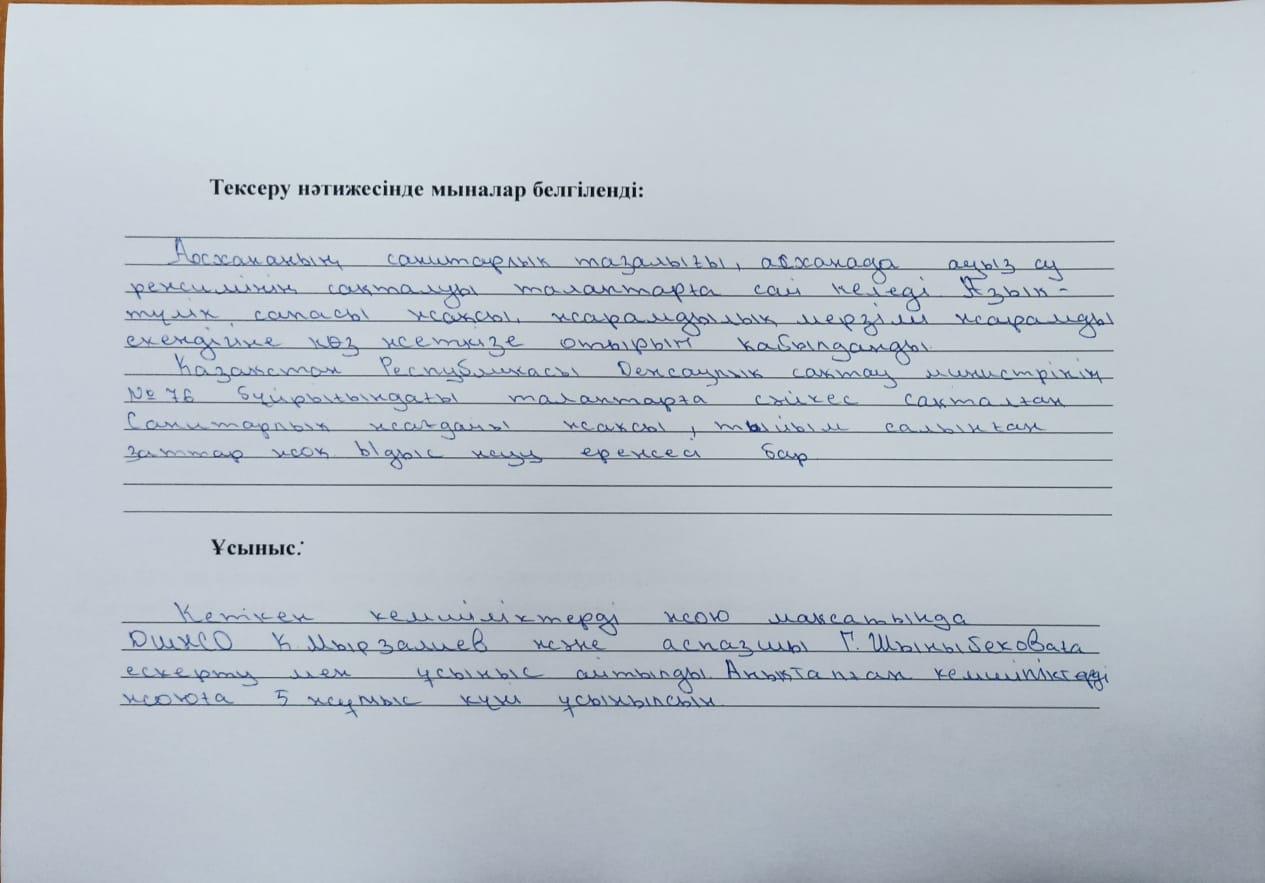 Тексеру нәтижесінде мыналар белгіленді:
Асхананың санитарлық тазалығы, асханада ауыз су
режимінің сақталуы талаптарға сай келеді. Азық-
түлік сапасы жақсы, жарамдылық мерзімі жарамды
екендігіне көз жеткізе отырып қабылданды.
Қазақстан Республикасы Денсаулық сақтау министрінің
№ 76 бұйрығындағы талаптарға сәйкес сақталған
Санитарлық жағдайы жақсы, тыйым салынған
заттар жоқ. Ыдыс жуу ережесі бар
Ұсыныс:
Кеткен кемшіліктерді жою мақсатында
ДШЖО К. Мырзалиев және аспазшы Г. Шыныбековаға
ескерту мен ұсыныс айтылды. Анықталған кемшіліктерді
жоюға 5 жұмыс күні ұсынылсын.